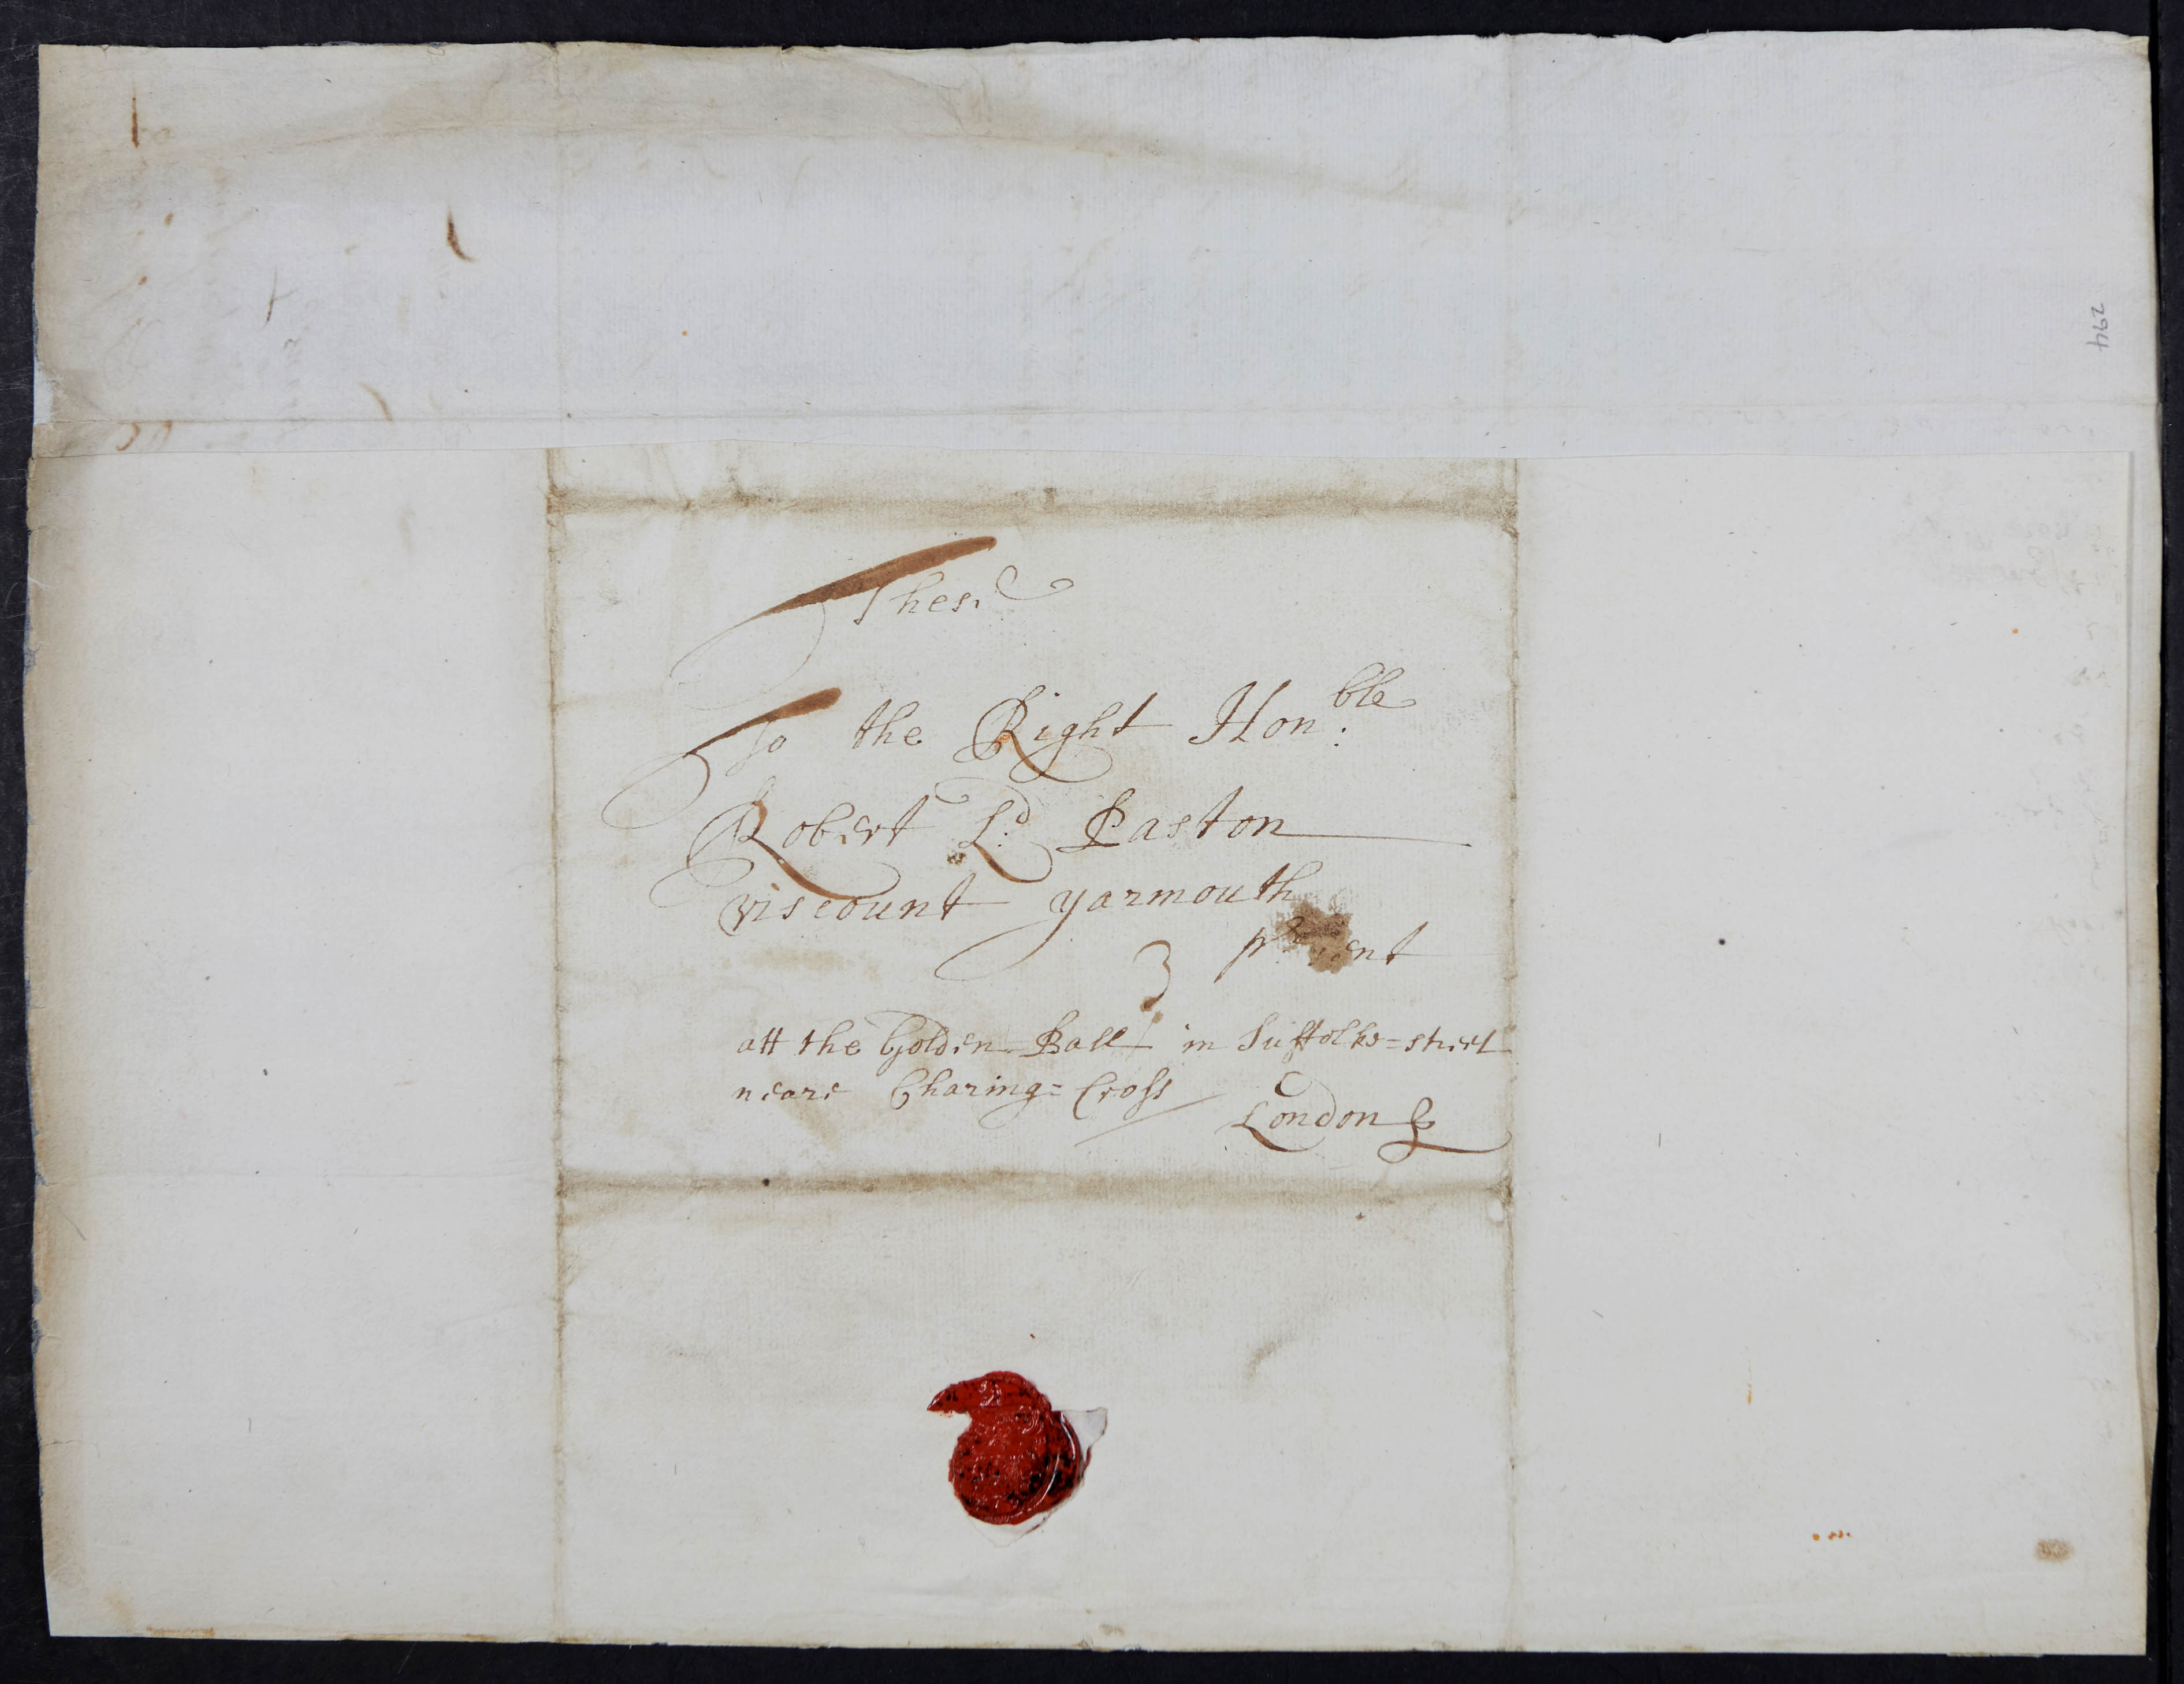 These
To the Right Hon:ble
Robert L:d Paston
viscount yarmouth
3
att the Golden Ball in Suffolke=street
neare Charing=Cross
London
294